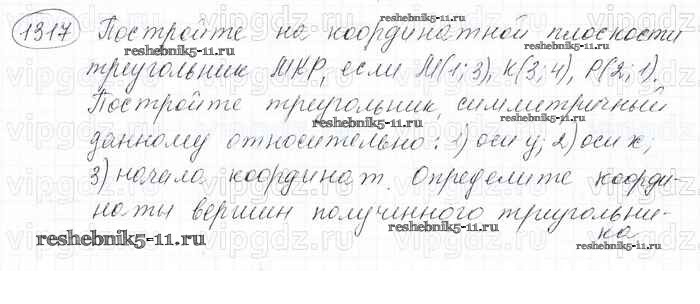 1317 Постройте на координатной плоскости
треугольник MKP, если M(1;3), K(3;4), P(2;1).
Постройте треугольник, симметричный
данному относительно: 1) оси y; 2) оси x;
3) начала координат. Определите коорди-
наты вершин полученного треугольни-
ка
reshebnik5-11.ru
reshebnik5-11.ru
reshebnik5-11.ru
reshebnik5-11.ru
reshebnik5-11.ru
reshebnik5-11.ru
vipgdz.ru